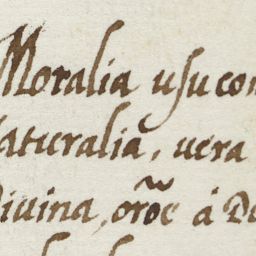 Moralia usu con
aturalia, vera
iuina, orõe á De